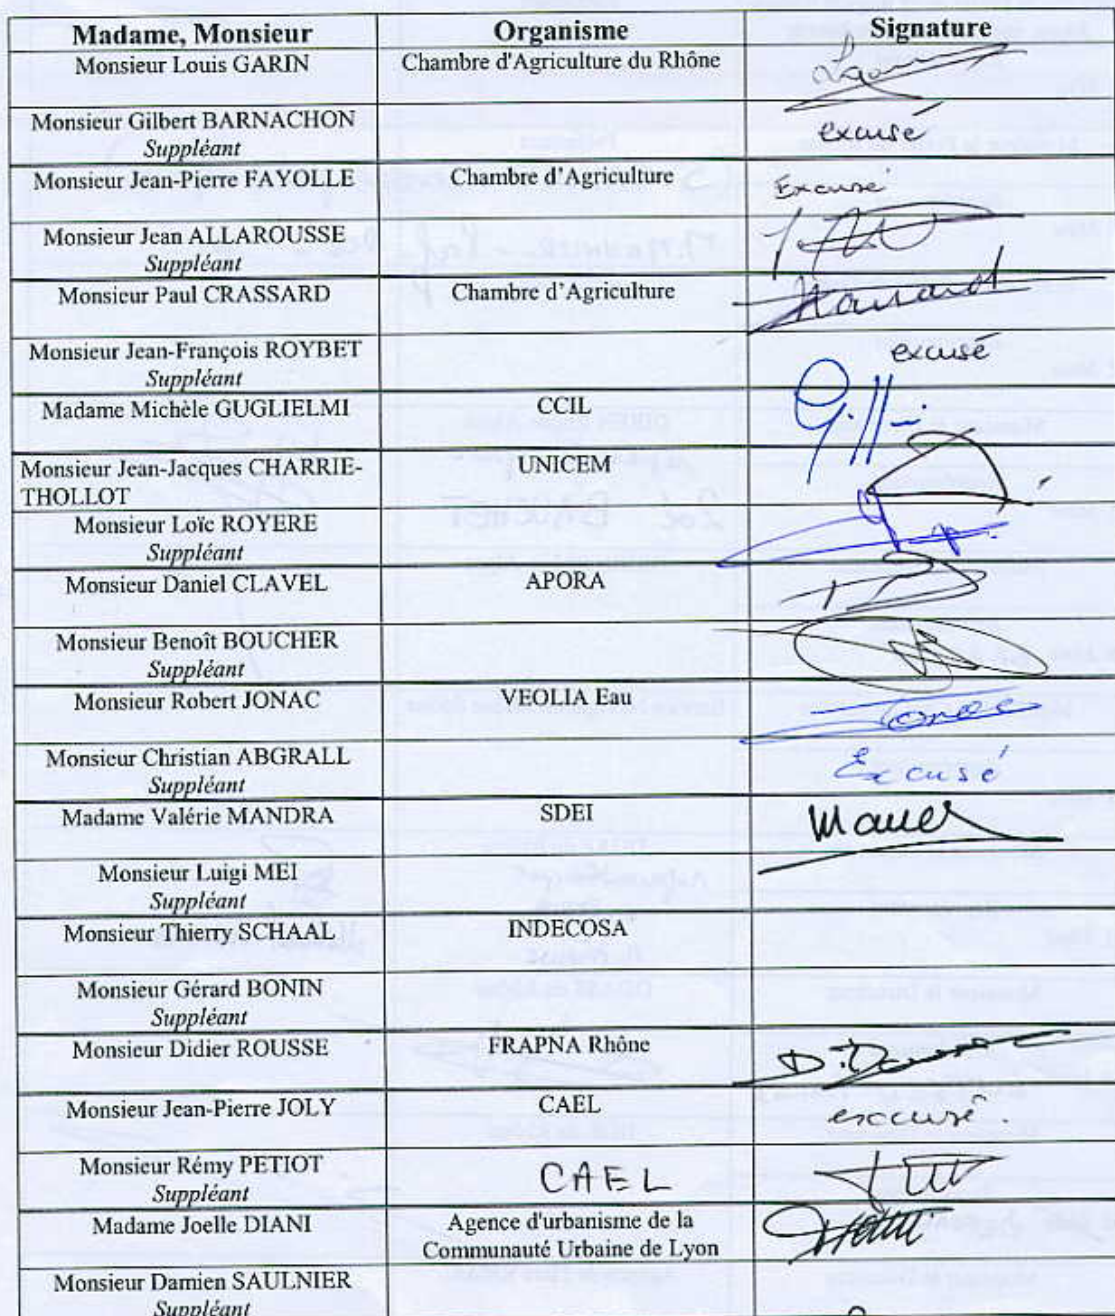 Madame, Monsieur Organisme Signature
Monsieur Louis GARIN Chambre d'Agriculture du Rhône
Monsieur Gilbert BARNACHON excusé
Suppléant
Monsieur Jean-Pierre FAYOLLE Chambre d'Agriculture Excusé
Monsieur Jean ALLAROUSSE
Suppléant
Monsieur Paul CRASSARD Chambre d'Agriculture
Monsieur Jean-François ROYBET excusé
Suppléant
Madame Michèle GUGLIELMI CCIL
Monsieur Jean-Jacques CHARRIE- UNICEM
THOLLOT
Monsieur Loïc ROYERE
Suppléant
Monsieur Daniel CLAVEL APORA
Monsieur Benoît BOUCHER
Suppléant
Monsieur Robert JONAC VEOLIA Eau
Monsieur Christian ABGRALL Excusé
Suppléant
Madame Valérie MANDRA SDEI
Monsieur Luigi MEI
Suppléant
Monsieur Thierry SCHAAL INDECOSA
Monsieur Gérard BONIN
Suppléant
Monsieur Didier ROUSSE FRAPNA Rhône
Monsieur Jean-Pierre JOLY CAEL excusé.
Monsieur Rémy PETIOT CAEL
Suppléant
Madame Joelle DIANI Agence d'urbanisme de la
Communauté Urbaine de Lyon
Monsieur Damien SAULNIER
Suppléant